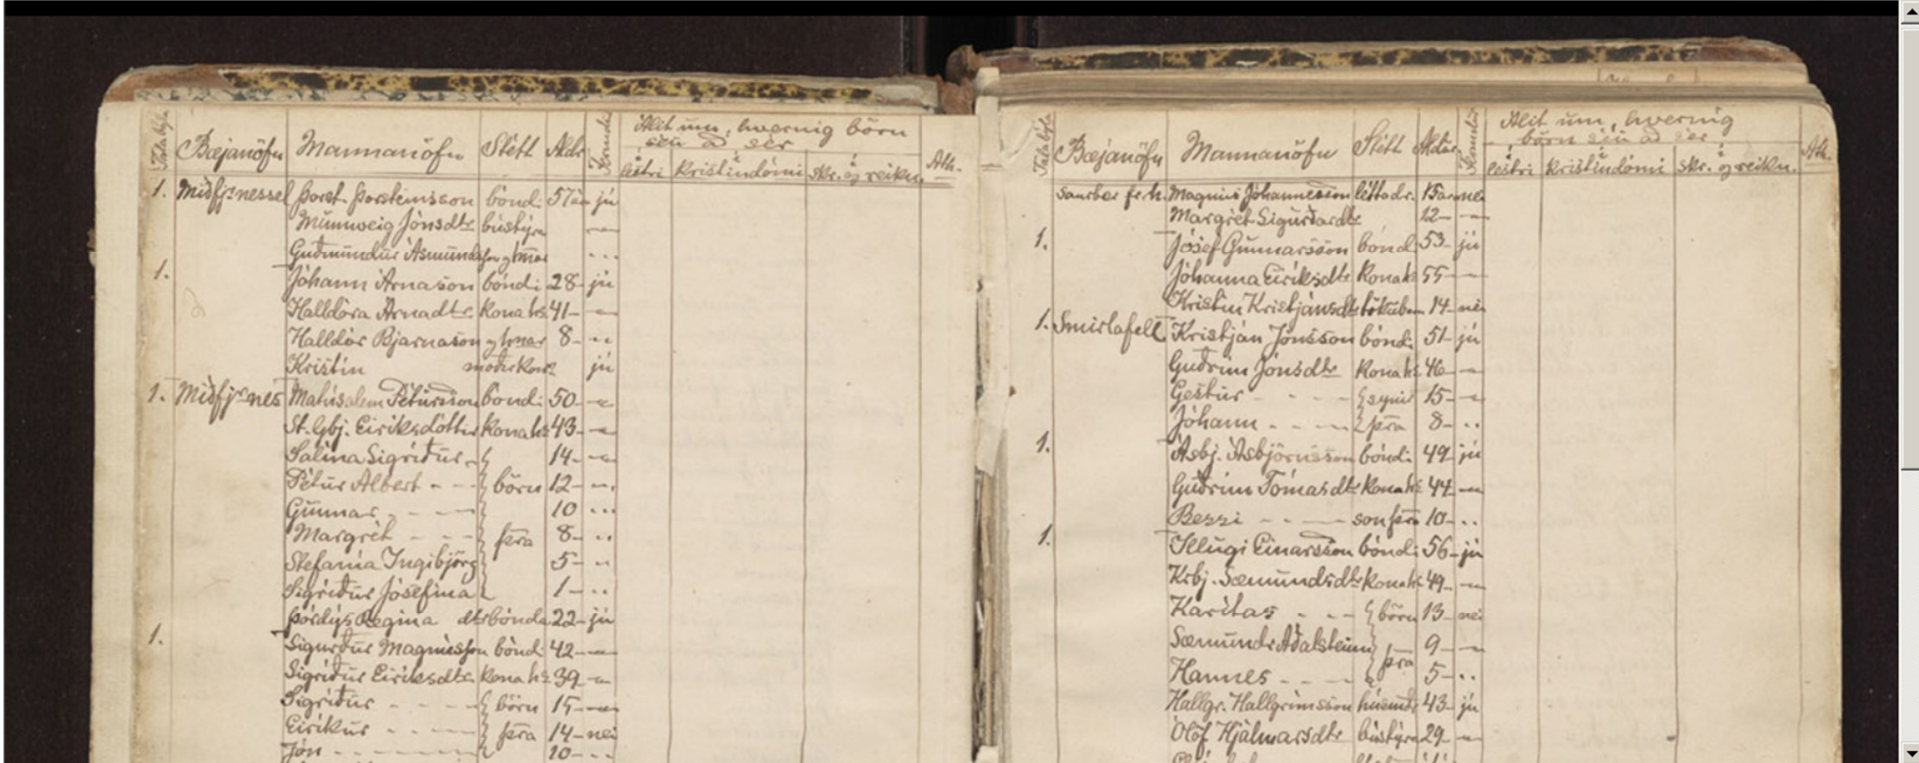 Bæjanöfn Mannanöfn Stétt Aldr Álit um, hvernig börn Ath.
séu að sér
lestri kristindómi skr. og reikn.
1. Miðfj.nessel Þorst. Þorsteinsson bóndi 57 já
Munnveig Jónsdtr bústýra
Guðmundur Ásmundsson
1. Jóhann Árnason bóndi 28 já
Halldóra Árnadtr kona hs 41
Halldór Bjarnason 8
Kristín móðir já
1. Miðfj.nes Mathúsalem Pétursson bóndi 50
St. Gbj. Eiríksdóttir kona hs 43
Salína Sigríður 14
Pétur Albert börn 12
Gunnar 10
Margrét þrra 8
Stefanía Ingibjörg 5
Sigríður Jósefína 1
Þórdýs Regína dtr bónda 22 já
1. Sigurður Magnússon bóndi 42
Sigríður Eiríksdtr kona hs 39
Sigríður börn 15
Eiríkur þrra 14 nei
Jón 10
Bæjanöfn Mannanöfn Stétt Aldur Álit um, hvernig Ath.
börn séu að sér
lestri kristindómi skr. og reikn.
Saurbær fr.h. Magnús Jóhannesson léttadr. 15 nei
Margrét Sigurðardtr 12
1. Jósef Gunnarsson bóndi 53 já
Jóhanna Eiríksdtr kona hs 55
Kristín Kristjánsdtr tökubarn 14 nei
1. Smirlafell Kristján Jónsson bóndi 51 já
Guðrún Jónsdtr kona hs 46
Gestur synir 15
Jóhann þrra 8
1. Ásbj. Ásbjörnsson bóndi 49 já
Guðrún Tómasdtr kona hs 44
Bessi son þrra 10
1. Illugi Einarsson bóndi 56 já
Krbj. Sæmundsdtr kona hs 49
Karítas börn 13 nei
Sæmundr Aðalsteinn þrra 9
Hannes 5
Hallgr. Hallgrímsson húsmðr 43 já
Ólöf Hjálmarsdtr bústýra 29